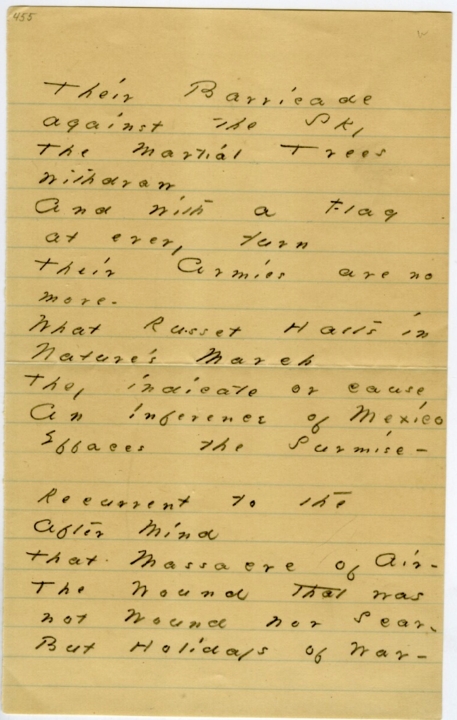 455
Their Barricade
against the Sky
The Martial Trees
Withdraw
And with a Flag
at every turn
Their Armies are no
more.
What Russet Halts in
Nature's March
They indicate or cause
An inference of Mexico
Effaces the Surmise -

Recurrent to the
After Mind
That Massacre of Air -
The Wound that was
not Wound nor Scar -
But Holidays of War -